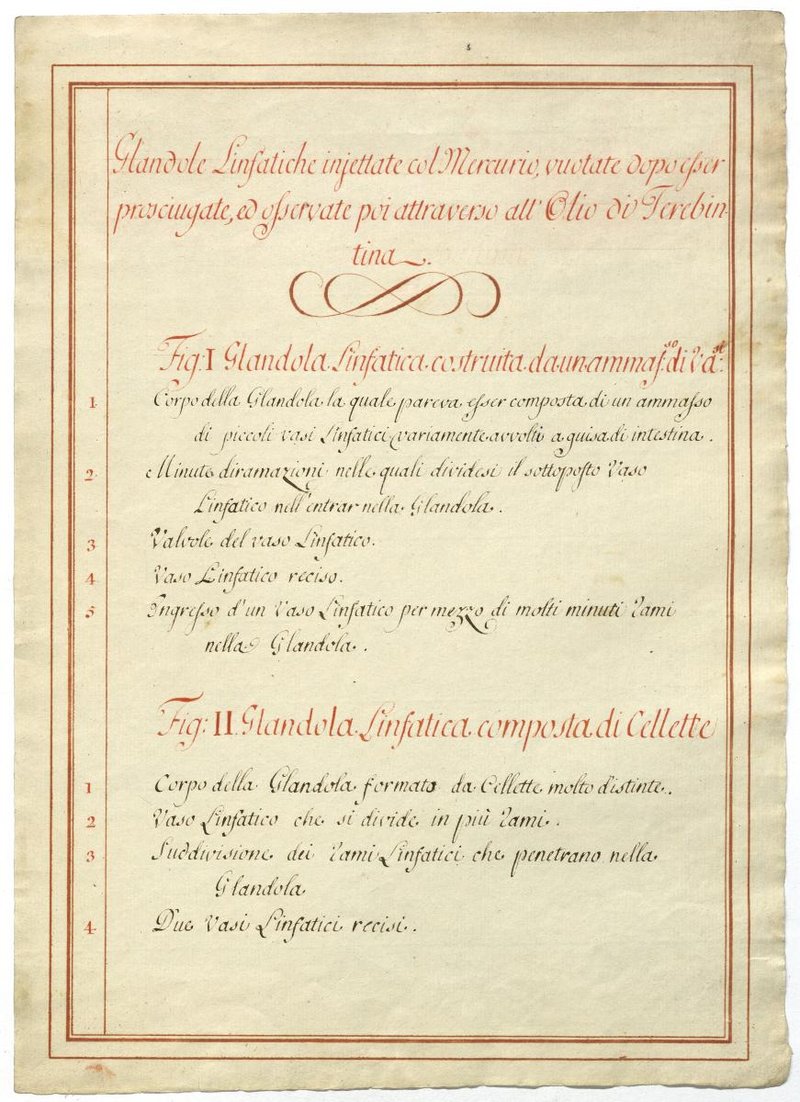 Glandole Linfatiche injettate col Mercurio, vuotate dopo esser
prosciugate, ed osservate poi attraverso all' Olio di Terebin-
tina.
Fig: I Glandola Linfatica costruita da un ammasso di Vasi
1 Corpo della Glandola la quale pareva esser composta di un ammasso
di piccoli vasi Linfatici variamente avvolti a guisa di intestina.
2 Minute diramazioni nelle quali dividesi il sottoposto Vaso
Linfatico nell'entrar nella Glandola.
3 Valvole del vaso Linfatico.
4 Vaso Linfatico reciso.
5 Ingresso d'un Vaso Linfatico per mezzo di molti minuti Rami
nella Glandola.
Fig: II Glandola Linfatica composta di Cellette
1 Corpo della Glandola formato da Cellette molto distinte.
2 Vaso Linfatico che si divide in più Rami.
3 Suddivisione dei Rami Linfatici che penetrano nella
Glandola
4 Due Vasi Linfatici recisi.